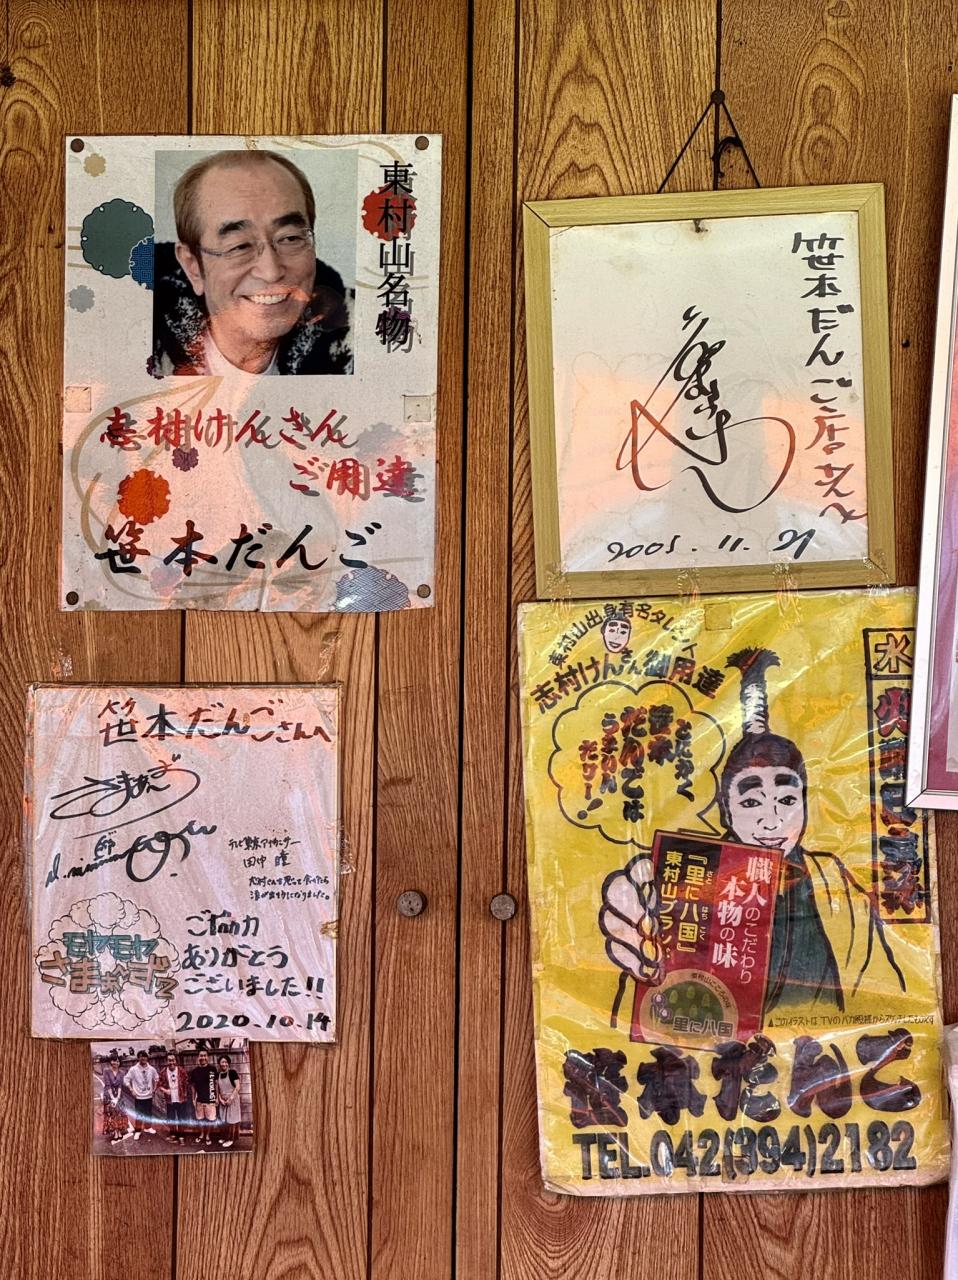 東村山名物
志村けんさん
ご用達
笹本だんご
笹本だんご店さんへ
2005.11.27
笹本だんごさんへ
さまぁ〜ず
テレビ東京アナウンサー
田中 瞳
モヤモヤ
さまぁ〜ず2
ご協力
ありがとう
ございました!!
2020.10.14
東村山出身有名タレント
志村けんさん御用達
とにかく
笹本
だんごは
うまいん
だヨー!
水
職人のこだわり
本物の味
『里に八国』
さと はちこく
東村山ブランド
里に八国
▲このイラストはTVのバカ殿様からスケッチしたものです
笹本だんご
TEL.042(394)2182